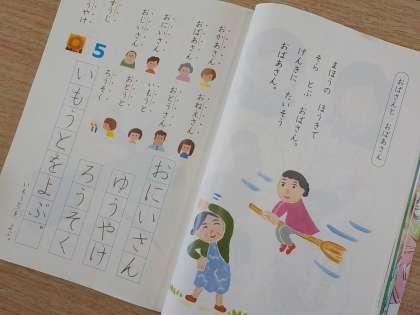 おばさんと おばあさん
まほうの ほうきで
そら とぶ おばさん。
げんきに たいそう
おばあさん。
おかあさん
おねえさん
おばあさん
おとうさん
おにいさん
いもうと
おじいさん
おとうと
すうじ
ろうそく
ゆうやけ
5
おにいさん
ゆうやけ
ろうそく
いもうとをよぶ。